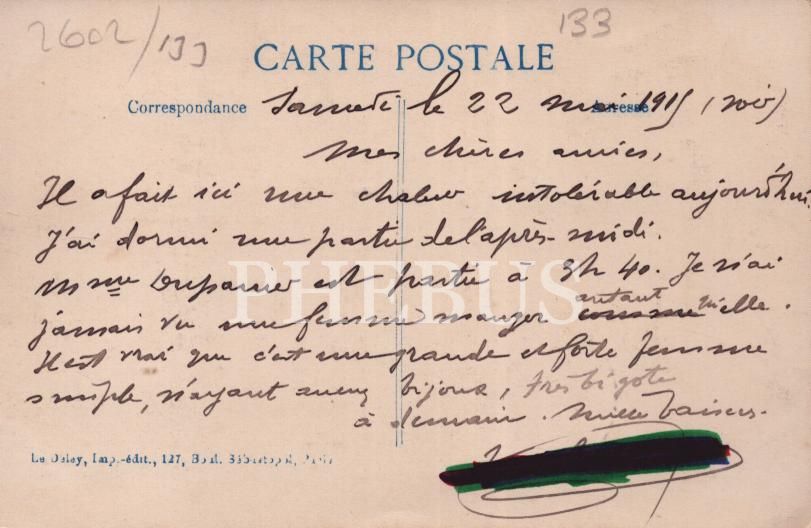 2602/133
133
CARTE POSTALE
Correspondance Samedi le 22 mai 1915 (soir)
Adresse
Mes chères amies,
Il a fait ici une chaleur intolérable aujourd'hui.
J'ai dormi une partie de l'après-midi.
Mme est partie à 3h 40. Je n'ai
autant
jamais vu une femme manger comme elle.
Il est vrai que c'est une grande et forte femme
simple, n'ayant aucun bijoux, très bigote
à demain. Mille baisers.
Le Deley, Imp.-édit., 127, Boul. Sébastopol, Paris
PHEBUS